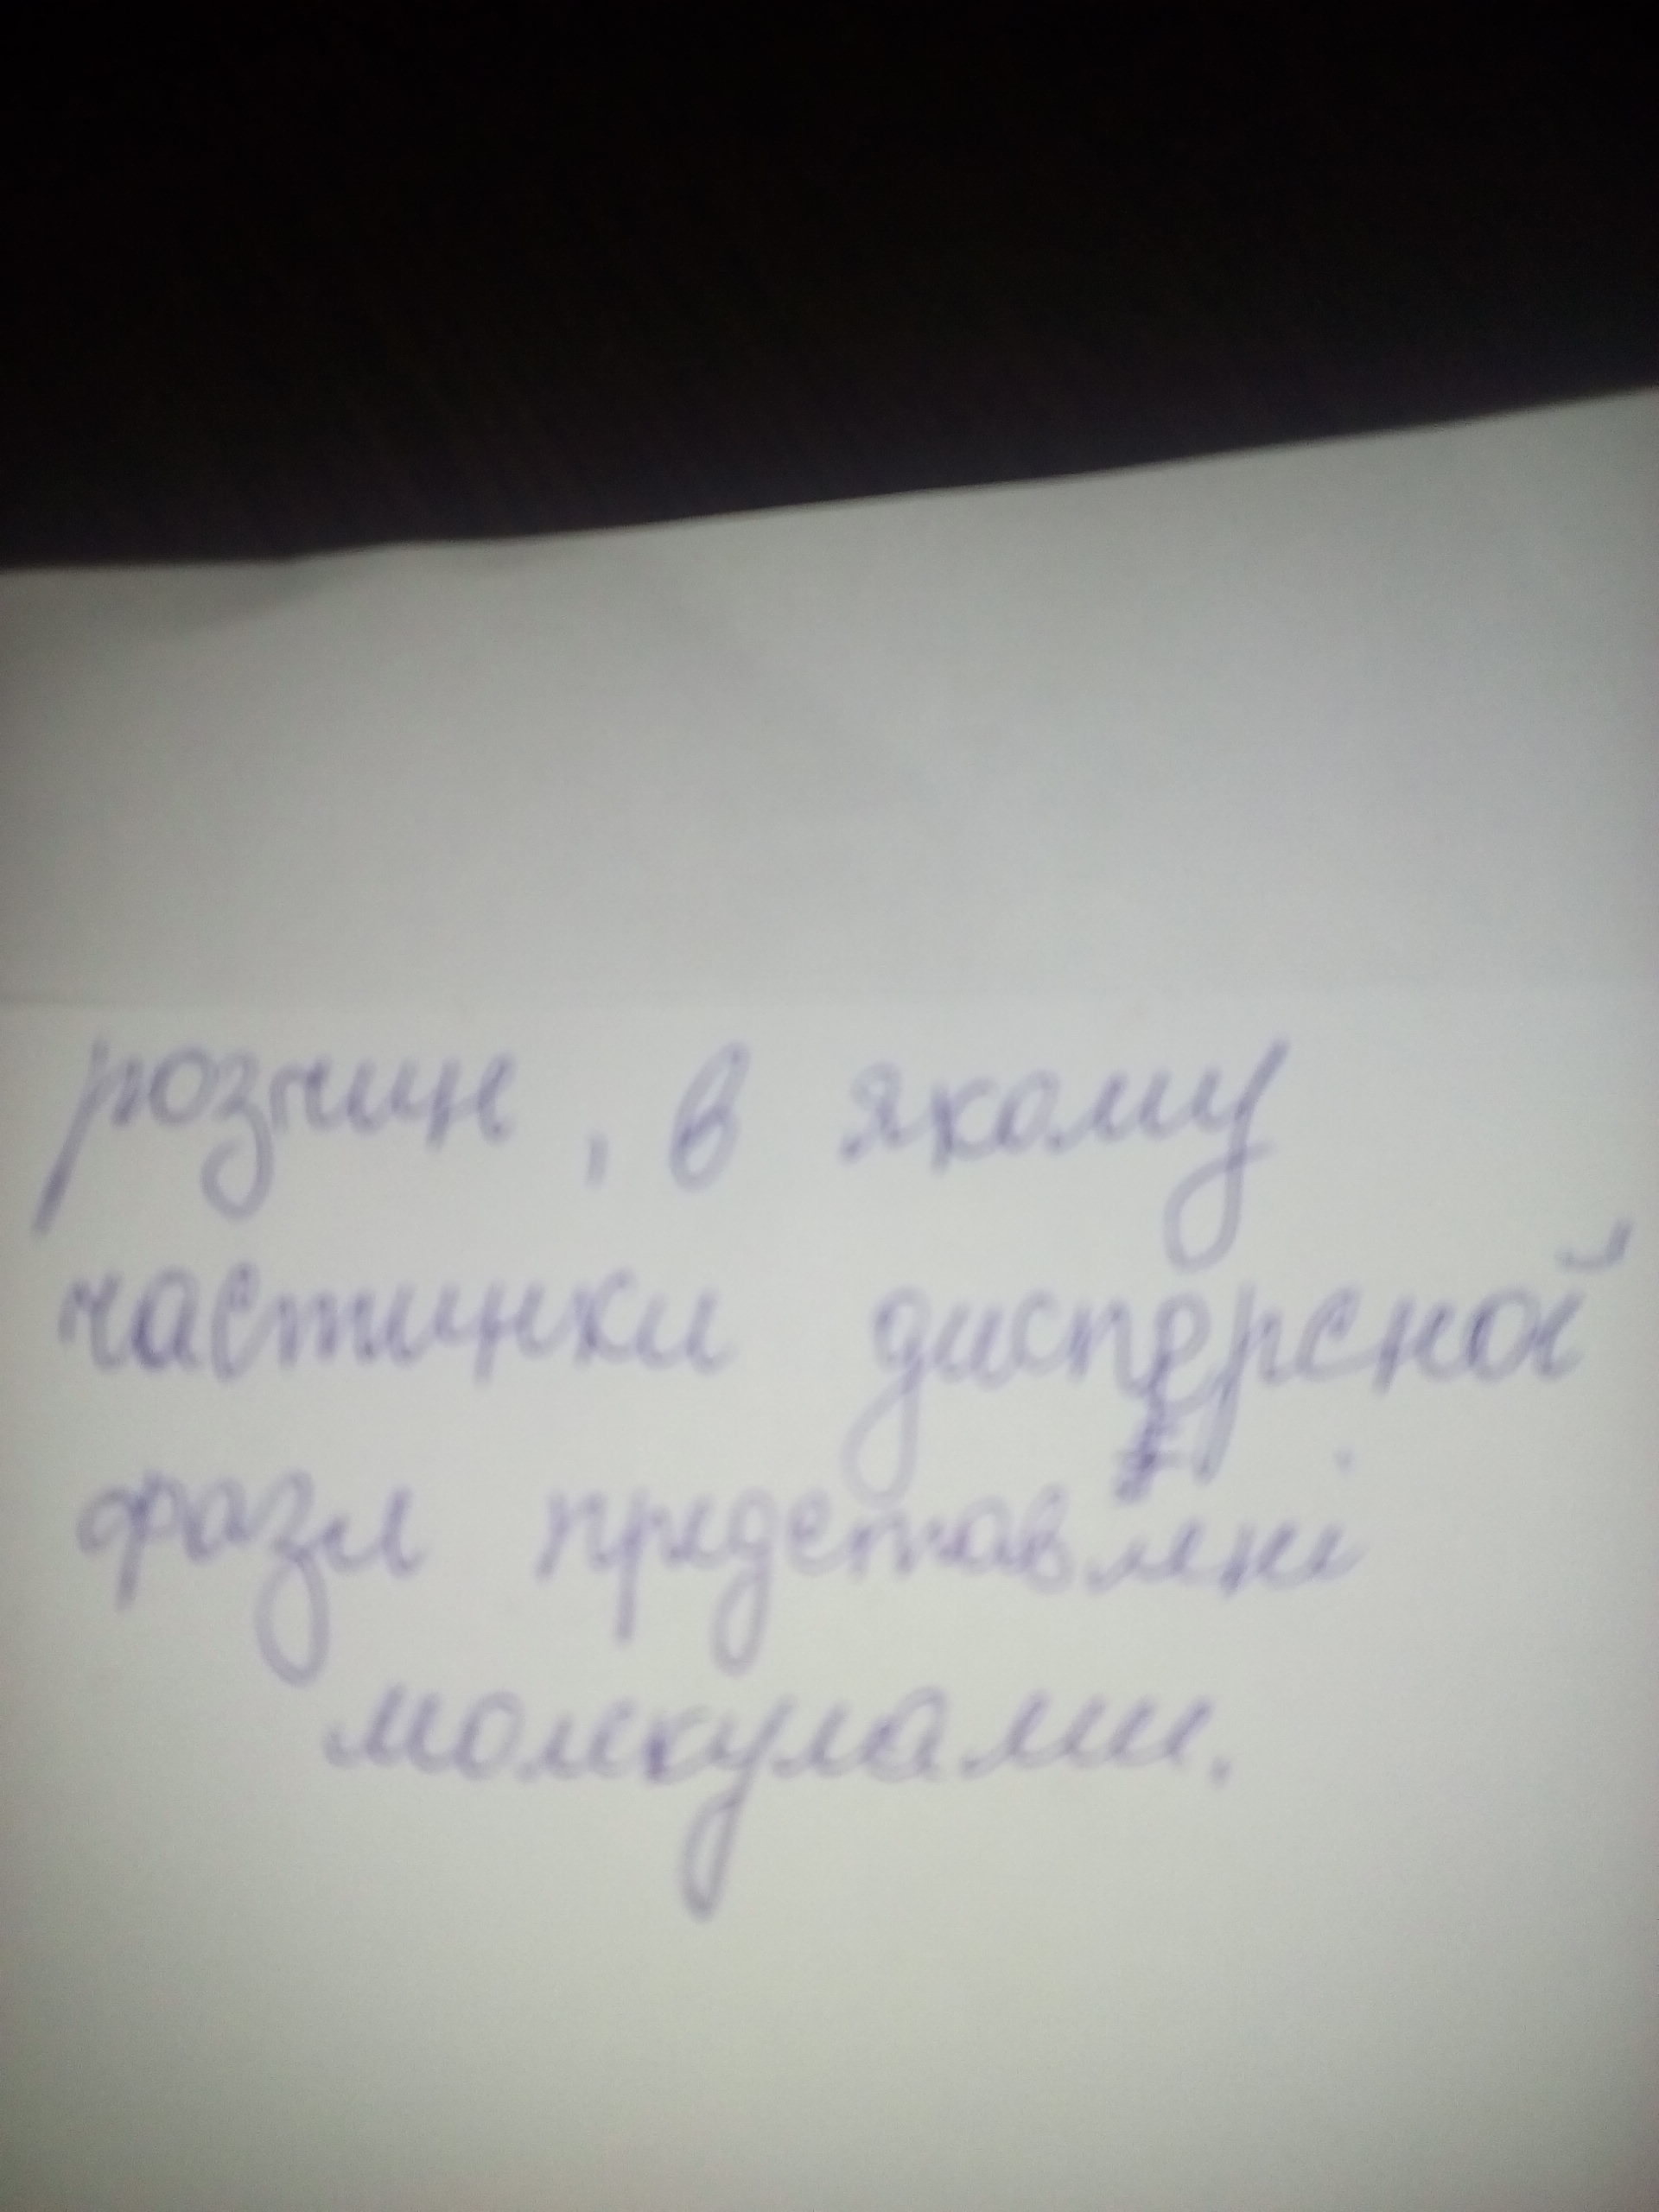 розчин, в якому
частинки дисперсної
фази представлені
молекулами.